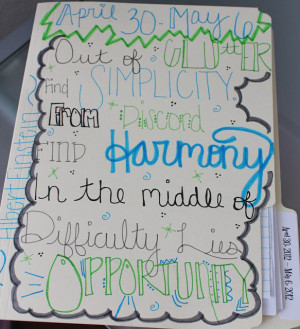 April 30-May 6
Out of CLUTTER
Find SIMPLICITY
FROM Discord
FIND Harmony
In the middle of
Difficulty Lies
OPPORTUNITY
Albert Einstein
April 30, 2012 - May 6, 2012